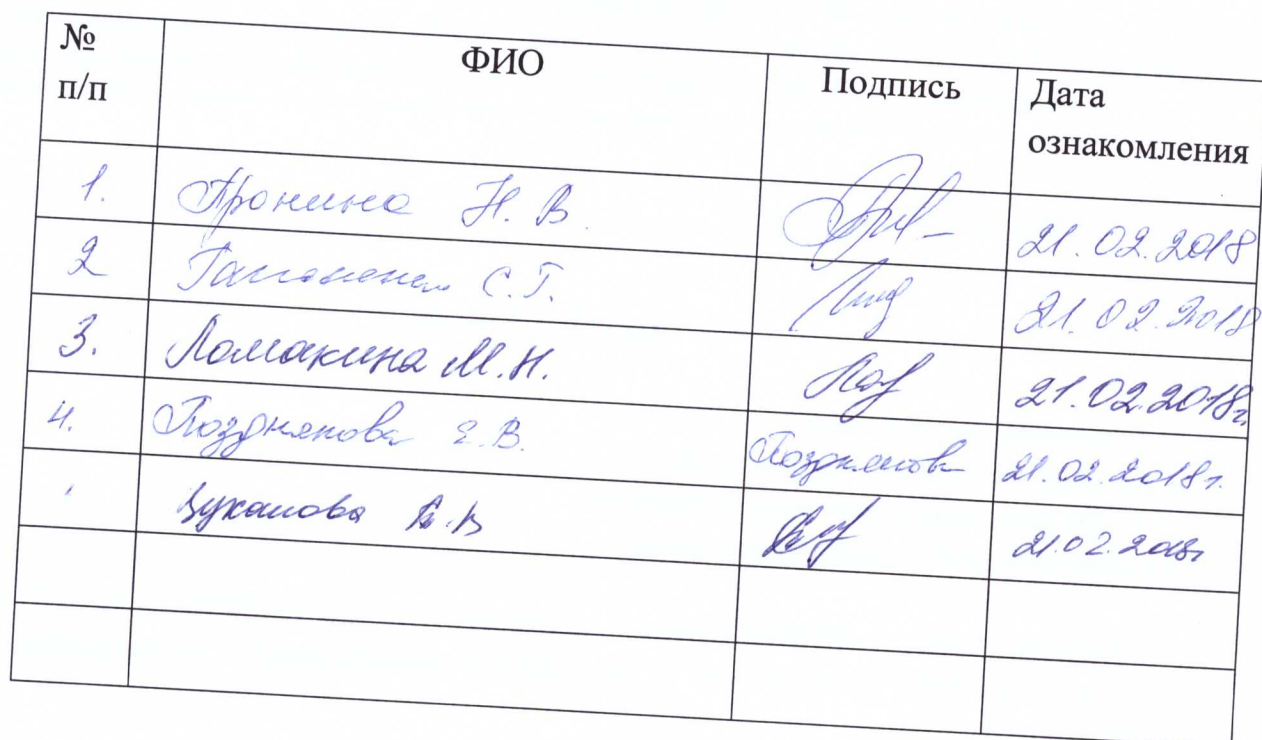 № п/п ФИО Подпись Дата ознакомления
1. Пронина Н. В. 21.02.2018
2 С.Г. 21.02.2018
3. Ломакина М.Н. 21.02.2018г.
4. Позднякова Е.В. Позднякова 21.02.2018г.
Цуканова 21.02.2018г